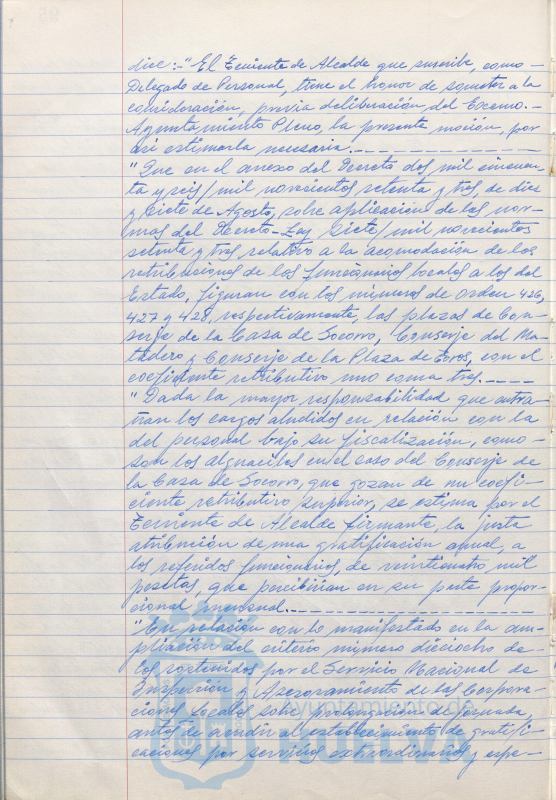 dice:-"El Teniente de Alcalde que suscribe, como-
Delegado de Personal, tiene el honor de someter a la
consideración, previa deliberación del Excmo.-
Ayuntamiento Pleno, la presente moción, por
así estimarla necesaria.-
"Que en el anexo del Decreto dos mil cincuen-
ta y seis/mil novecientos setenta y tres de diez
y siete de Agosto, sobre aplicación de las nor-
mas del Decreto-Ley siete/mil novecientos
setenta y tres relativo a la acomodación de las
retribuciones de los funcionarios locales a los del
Estado, figuran con los números de orden 426,
427 y 428, respectivamente, las plazas de Con-
serje de la Casa de Socorro, Conserje del Ma-
tadero y Conserje de la Plaza de Toros, con el
coeficiente retributivo uno coma tres.-
"Dada la mayor responsabilidad que entra-
ñan los cargos aludidos en relación con la
del personal bajo su fiscalización, como-
son los alguaciles en el caso del Conserje de
la Casa de Socorro, que gozan de un coefi-
ciente retributivo superior, se estima por el
Teniente de Alcalde firmante, la justa
atribución de una gratificación anual, a
los referidos funcionarios, de veinticuatro mil
pesetas, que percibirían en su parte propor-
cional mensual.-
"En relación con lo manifestado en la am-
pliación del criterio número dieciocho de-
los sostenidos por el Servicio Nacional de
Inspección y Asesoramiento de las Corpora-
ciones Locales sobre prolongación de jornada
antes de acudir al establecimiento de gratifi-
caciones por servicios extraordinarios y espe-
Ayuntamiento de
HUELVA